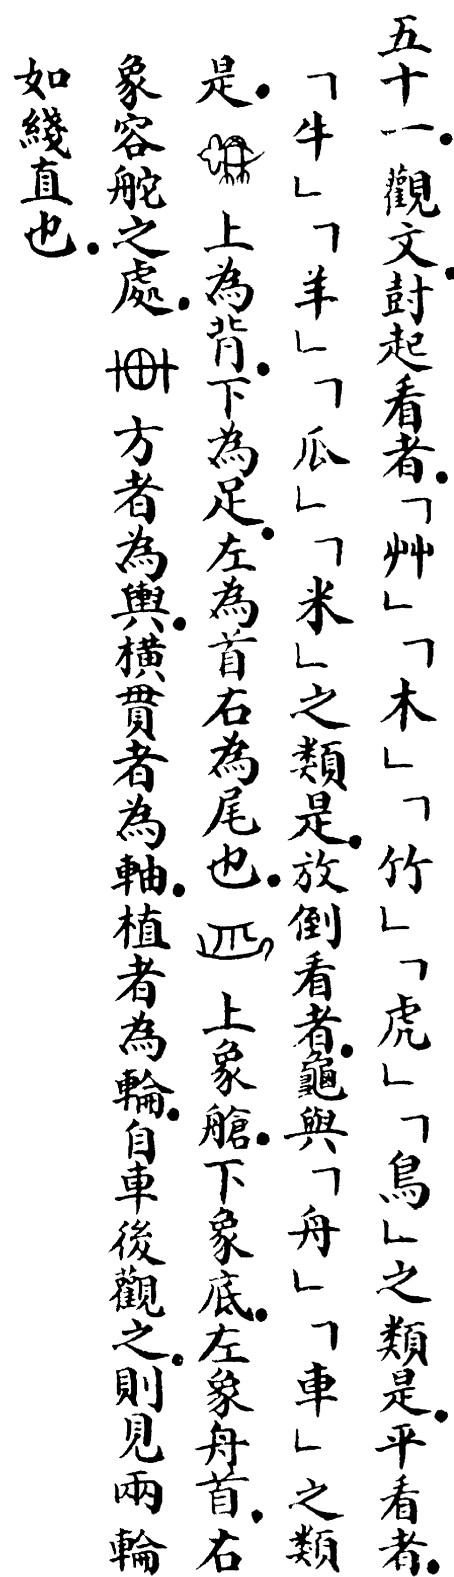 五十一.觀文.尌起看者.「艸」「木」「竹」「虎」「鳥」之類是.平看者.
「牛」「羊」「瓜」「米」之類是.放倒看者.龜與「舟」「車」之類
是.上為背.下為足.左為首右為尾也.上象艙.下象底.左象舟首.右
象容舵之處.方者為輿.橫貫者為軸.植者為輪.自車後觀之.則見兩輪
如綫直也.